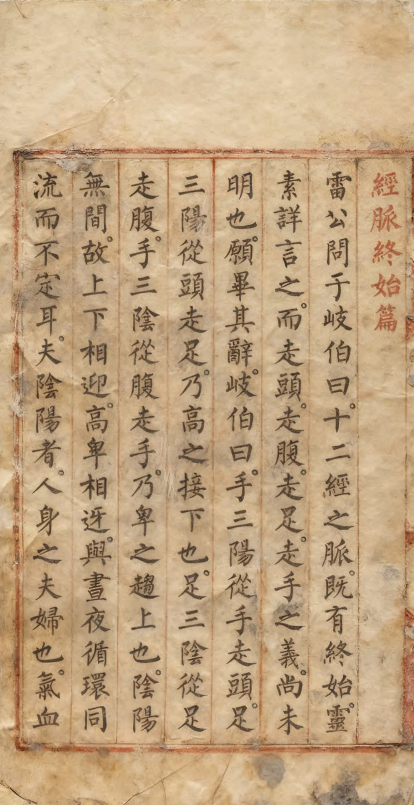 經脈終始篇
雷公問于岐伯曰。十二經之脈。既有終始。靈
素詳言之。而走頭。走腹。走足。走手之義。尚未
明也。願畢其辭。岐伯曰。手三陽從手走頭。足
三陽從頭走足。乃高之接下也。足三陰從足
走腹。手三陰從腹走手。乃卑之趨上也。陰陽
無間。故上下相迎。高卑相迓。與晝夜循環同
流而不定耳。夫陰陽者。人身之夫婦也。氣血